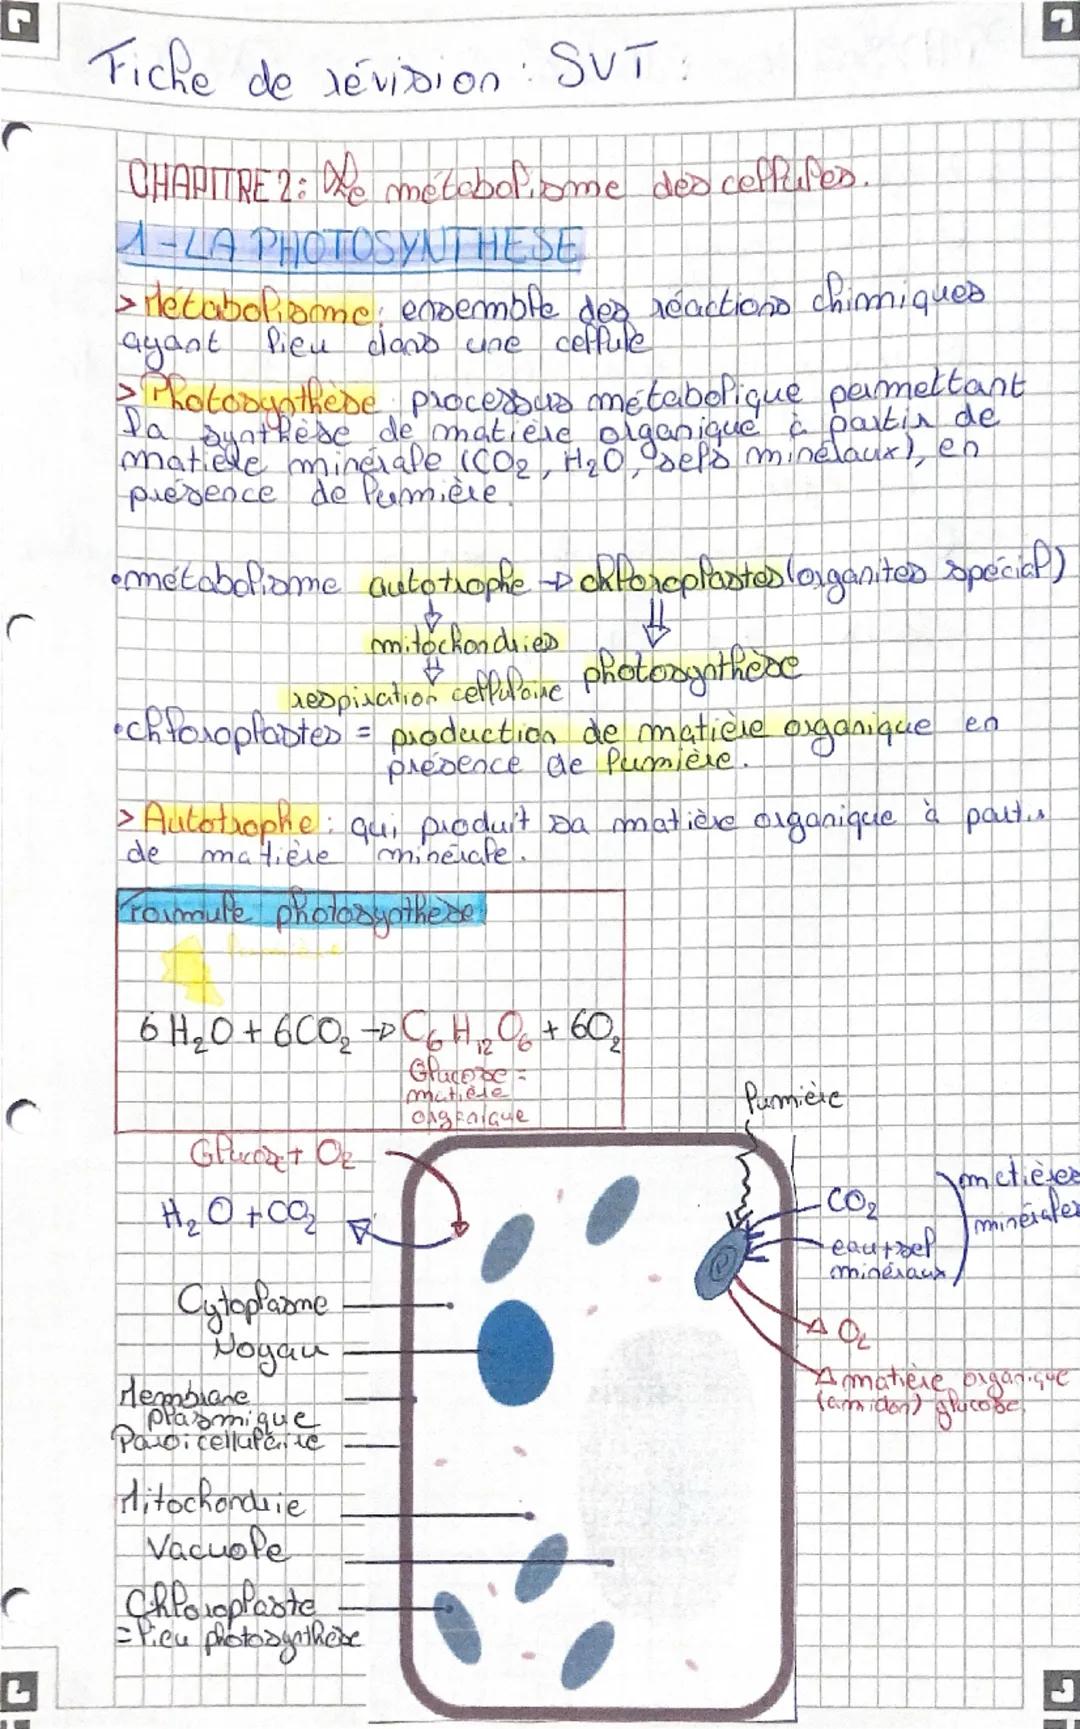 Fiche de révision : SVT :
CHAPITRE 2 : Le métabolisme des cellules.
1-LA PHOTOSYNTHESE
> Métabolisme : ensemble des réactions chimiques
ayant lieu dans une cellule
> Photosynthèse : processus métabolique permettant
la synthèse de matière organique à partir de
matière minérale (CO2, H2O, sels minéraux), en
présence de lumière.
•métabolisme autotrophe → chloroplastes (organites spécial)
mitochondries
photosynthèse
respiration cellulaire
•chloroplastes = production de matière organique en
présence de lumière.
> Autotrophe : qui produit sa matière organique à partir
de matière minérale.
Formule photosynthèse
lumière
6 H2O + 6CO2 → C6H12O6 + 6O2
Glucose =
matière
organique
lumière
Glucose + O2
H2O + CO2
CO2
eau + sel
minéraux
matières
minérales
Cytoplasme
Noyau
O2
Membrane
plasmique
matière organique
(amidon) glucose
Paroi cellulaire
Mitochondrie
Vacuole
Chloroplaste
= lieu photosynthèse